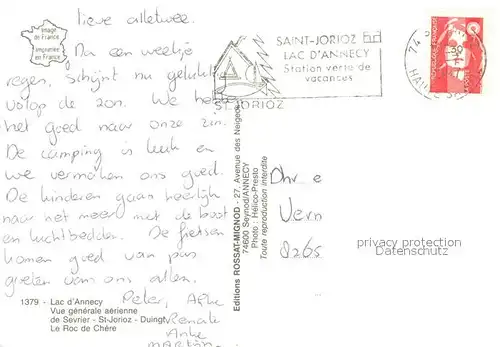 Lieve alletwee.
Na een weekje
regen, schijnt nu gelukkig
volop de zon. We hebben
het goed naar onze zin.
De camping is leuk en
we vermaken ons goed.
De kinderen gaan heerlijk
naar het meer met de boot
en luchtbedden. De fietsen
komen goed van pas
groeten van ons allen.
Peter,
Renate
Anke
Image
de France
imprimée
en France
SAINT-JORIOZ
LAC D'ANNECY
Station verte de
vacances
ST JORIOZ
74
HAUTE
Editions ROSSAT-MIGNOD - 27, Avenue des Neigeos
74600 Seynod/ANNECY
Photo : Hélico-Presto
Toute reproduction interdite
Dhr e
Vern
8265
privacy protection
Datenschutz
1379 - Lac d'Annecy
Vue générale aérienne
de Sevrier - St-Jorioz - Duingt
Le Roc de Chère